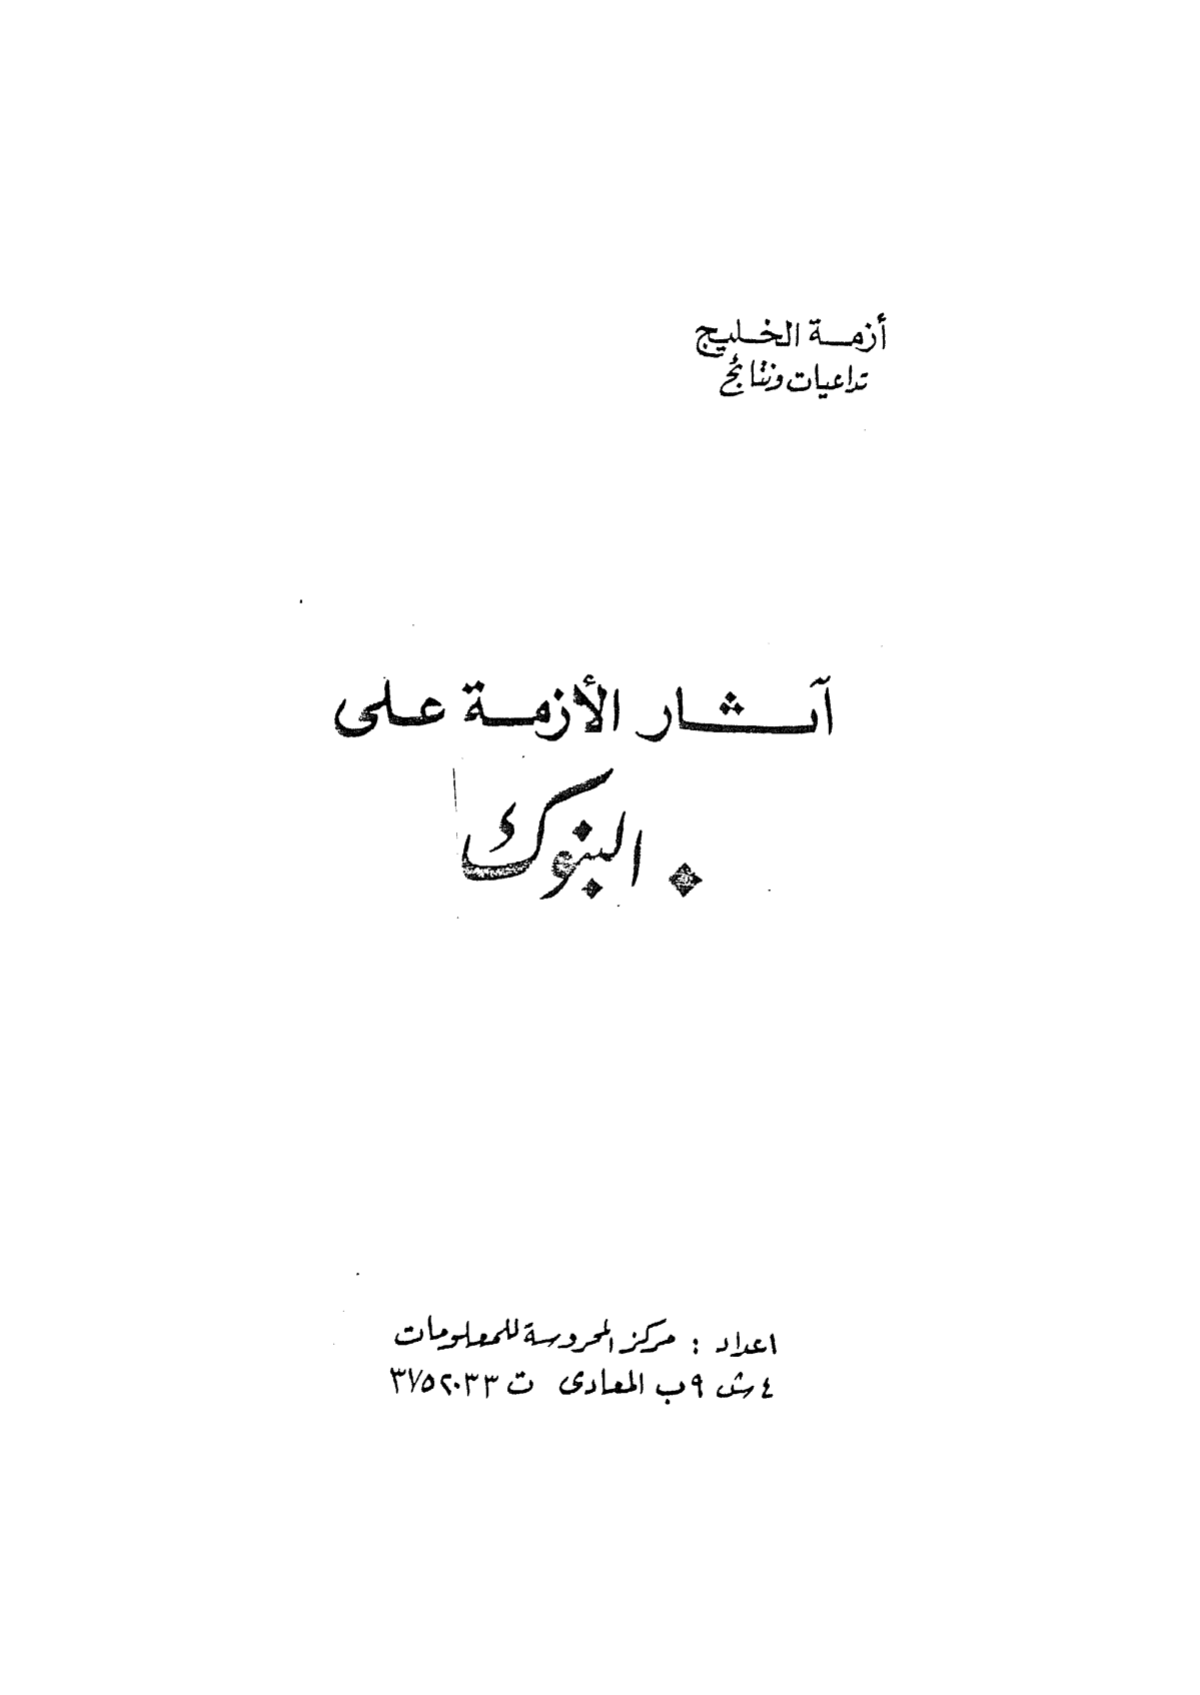 أزمة الخليج
تداعيات ونتائج
آثار الأزمة على
البنوك
اعداد : مركز المحروسة للمعلومات
٤ ش ٩ ب المعادى ت ٣٧٥٢٠٣٣